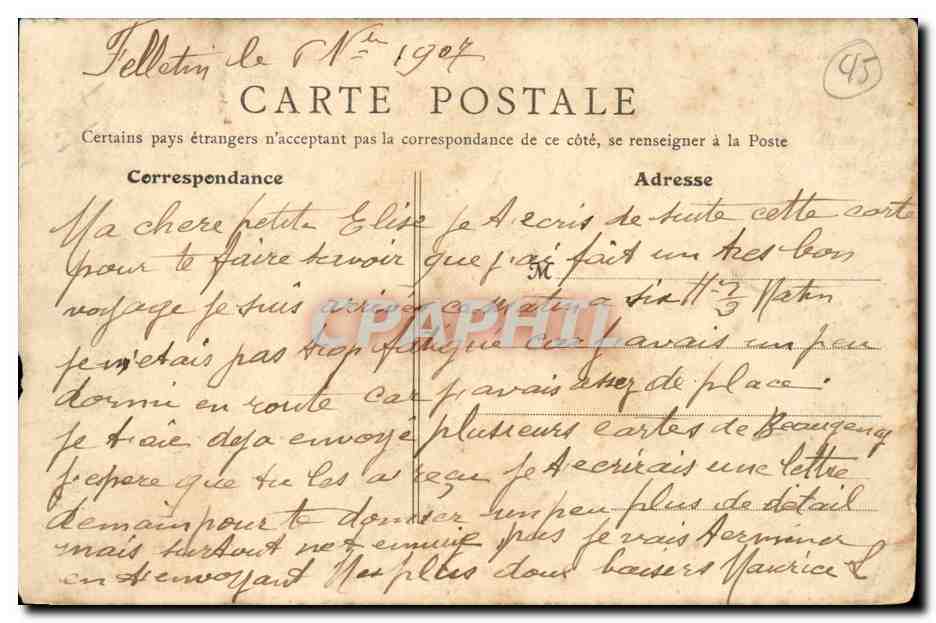 Felletin le 6 Nbre 1907
45
CARTE POSTALE
Certains pays étrangers n'acceptant pas la correspondance de ce côté, se renseigner à la Poste
Correspondance Adresse
Ma chere petite Elise je t'ecris de suite cette carte
pour te faire savoir que j'ai fait un tres bon
M
voyage je suis arrivé ce matin a six H Matin
CPAPHIL
je n'etais pas trop fatigué car j'avais un peu
dormi en route car j'avais assez de place.
je t'aie deja envoyé plusieurs cartes de Beaugency
j'espere que tu les a reçu je t'ecrirais une lettre
demain pour te donner un peu plus de detail
mais surtout ne t'ennuie pas je vais terminer
en t'envoyant Mes plus doux baisers Maurice L